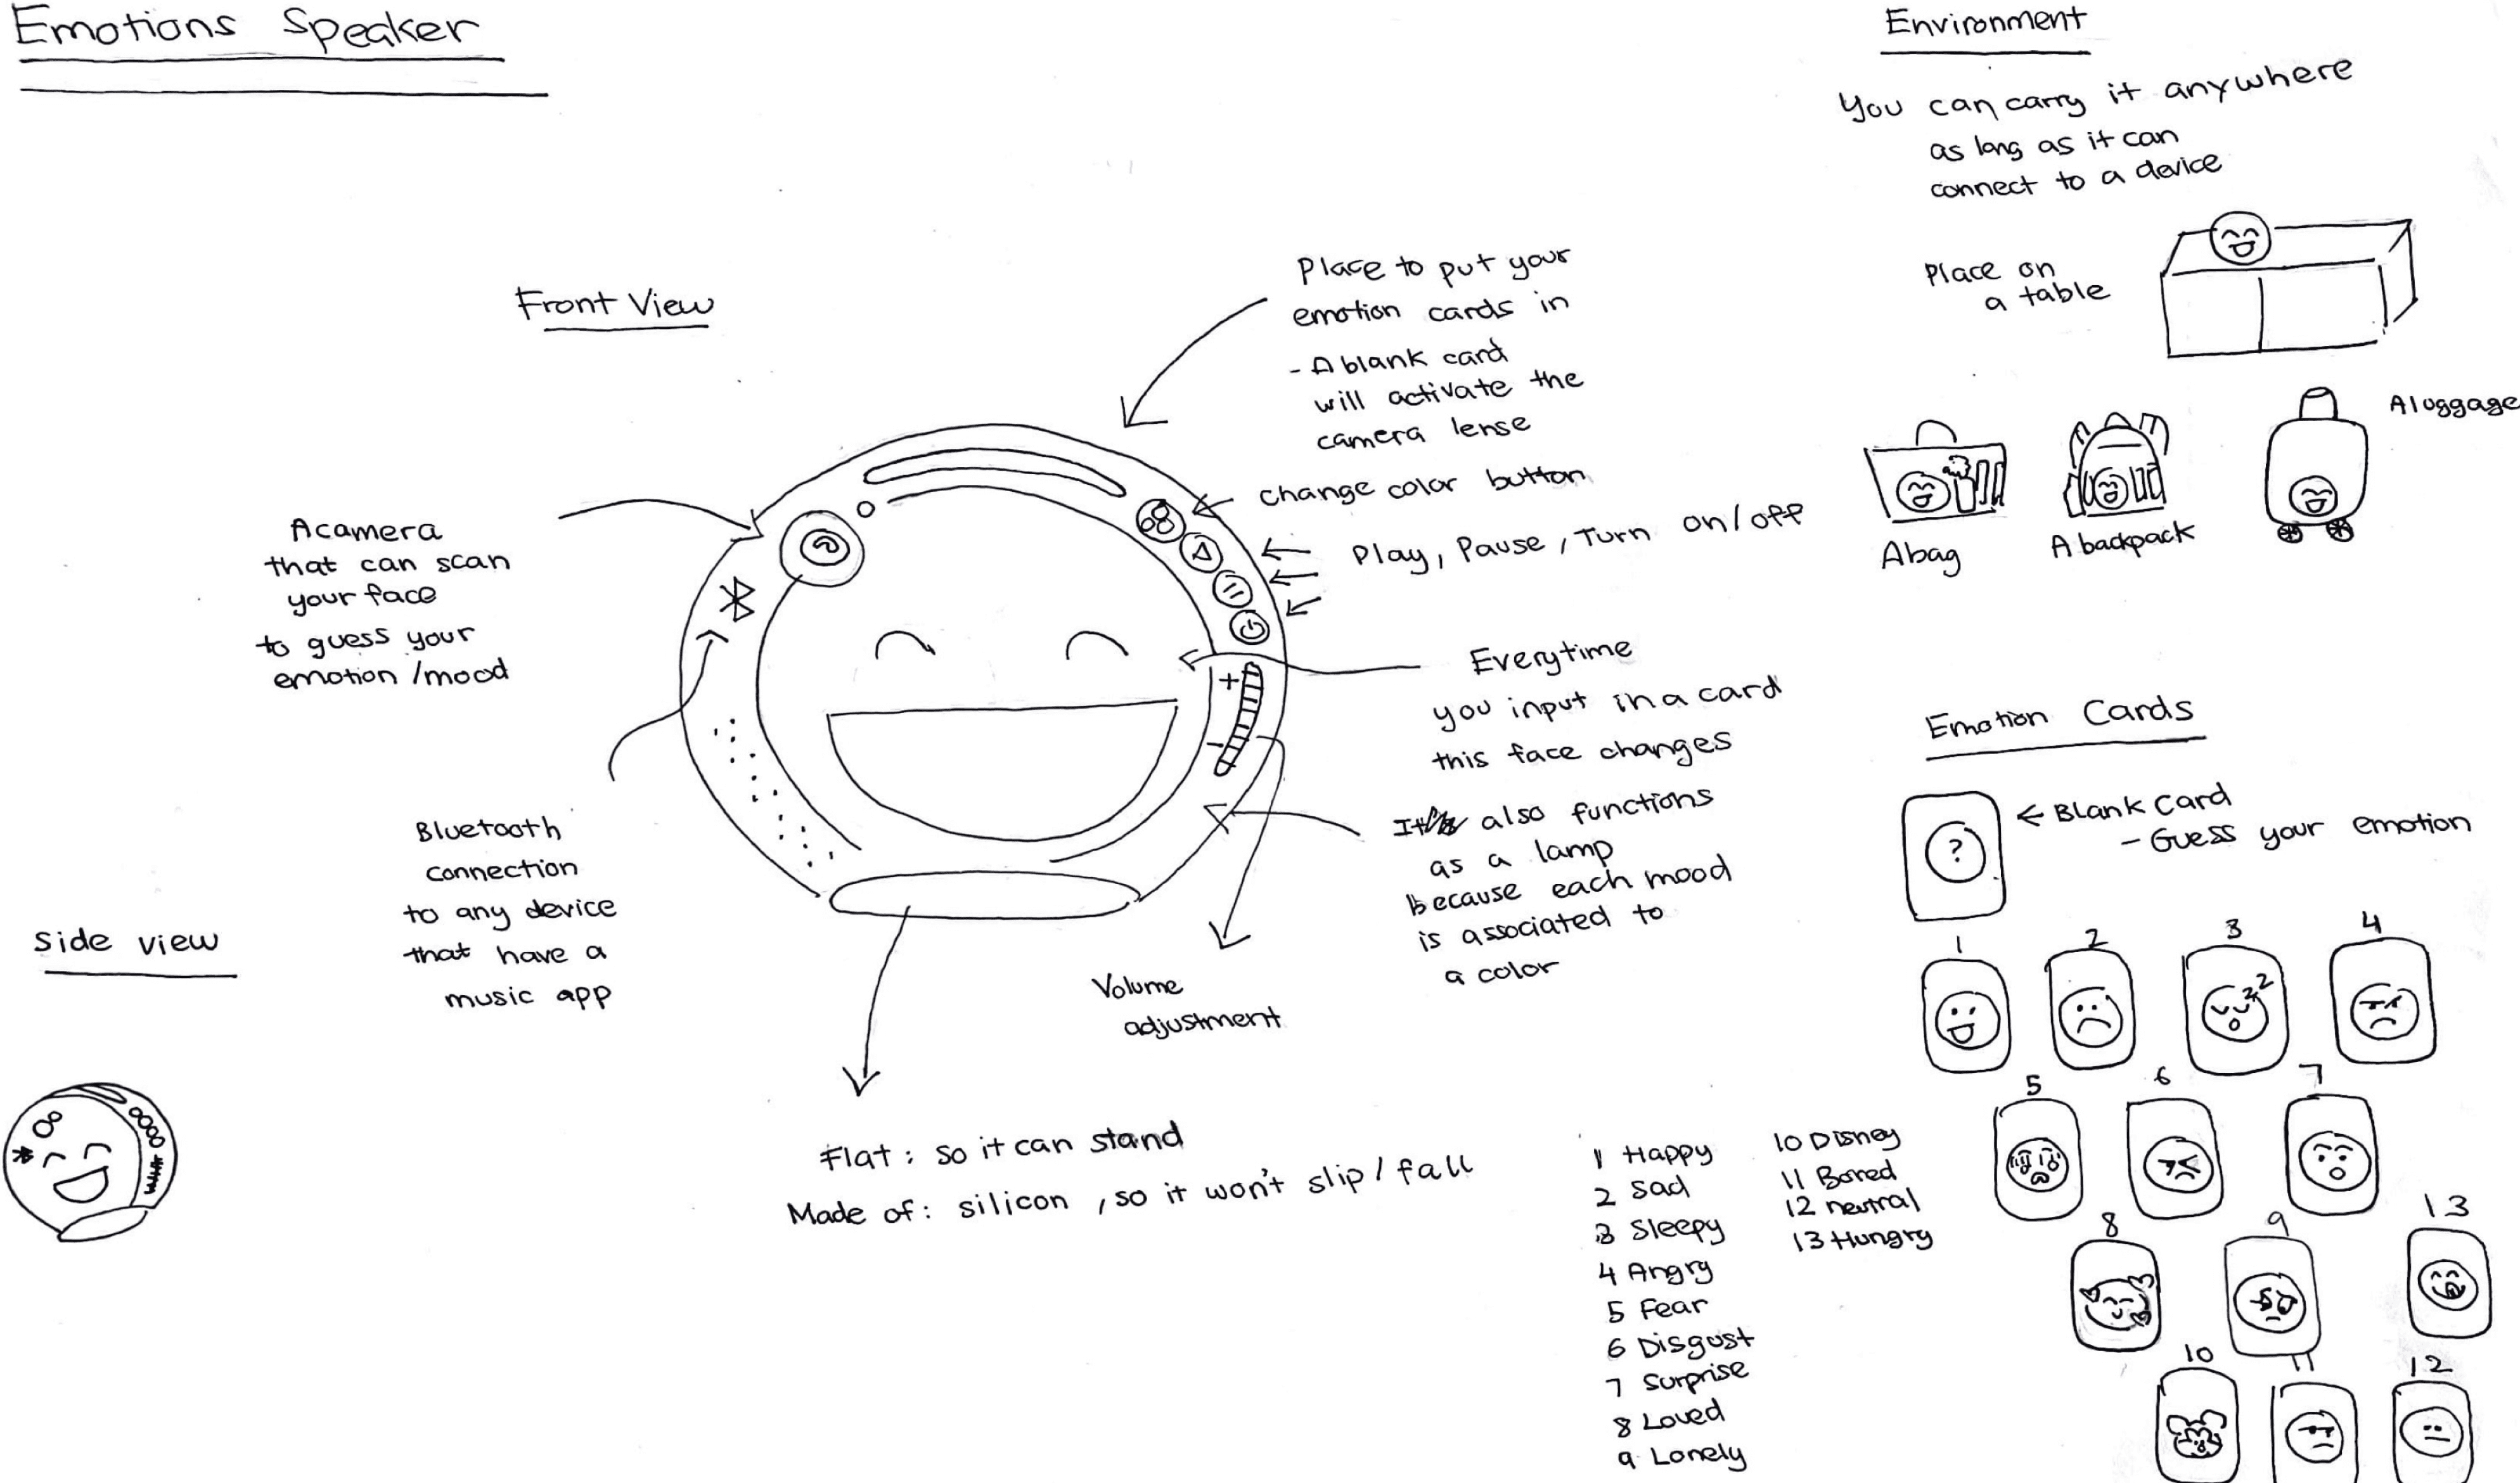 Emotions Speaker
Front View
A camera
that can scan
your face
to guess your
emotion / mood
Bluetooth
connection
to any device
that have a
music app
Side view
Place to put your
emotion cards in
- A blank card
will activate the
camera lense
change color button
Play, Pause, Turn on/off
Everytime
you input in a card
this face changes
It also functions
as a lamp
because each mood
is associated to
a color
+
-
Volume
adjustment
Flat : so it can stand
Made of : silicon , so it won't slip / fall
Environment
You can carry it anywhere
as long as it can
connect to a device
Place on
a table
A bag
A backpack
A luggage
Emotion Cards
?
← Blank Card
- Guess your emotion
1
2
3
4
zz
5
6
7
8
9
13
10
11
12
1 Happy
2 Sad
3 Sleepy
4 Angry
5 Fear
6 Disgust
7 Surprise
8 Loved
9 Lonely
10 Disney
11 Bored
12 neutral
13 Hungry